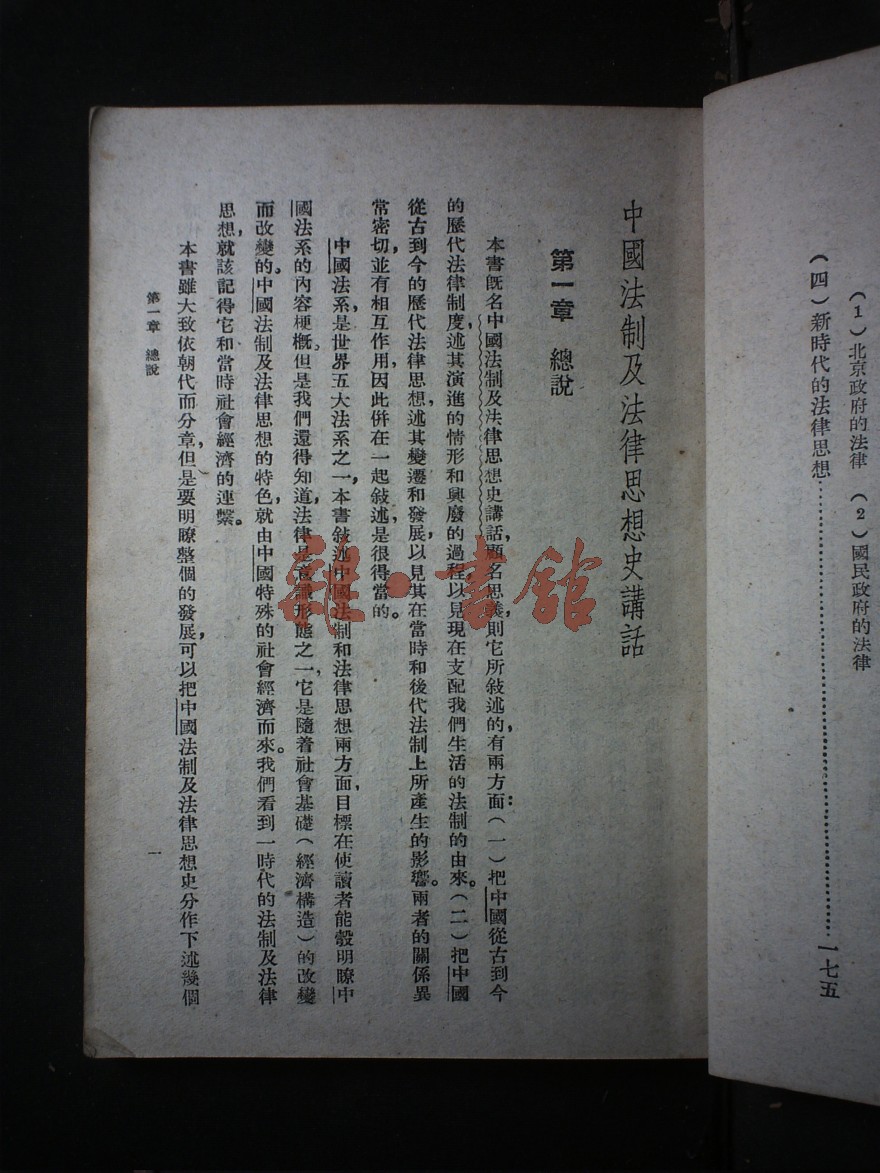 （1）北京政府的法律　（2）國民政府的法律
（四）新時代的法律思想……………………………………一七五
中國法制及法律思想史講話
第一章　總說
本書旣名中國法制及法律思想史講話，顧名思義，則它所敍述的，有兩方面：（一）把中國從古到今
的歷代法律制度，述其演進的情形和興廢的過程，以見現在支配我們生活的法制的由來。（二）把中國
從古到今的歷代法律思想，述其變遷和發展，以見其在當時和後代法制上所產生的影響。兩者的關係異
常密切，並有相互作用，因此併在一起敍述，是很得當的。
中國法系，是世界五大法系之一，本書敍述中國法制和法律思想兩方面，目標在使讀者能彀明瞭中
國法系的內容梗槪。但是我們還得知道，法律是意識形態之一，它是隨着社會基礎（經濟構造）的改變
而改變的。中國法制及法律思想的特色，就由中國特殊的社會經濟而來。我們看到一時代的法制及法律
思想，就該記得它和當時社會經濟的連繫。
本書雖大致依朝代而分章，但是要明瞭整個的發展，可以把中國法制及法律思想史分作下述幾個
第一章　總說
一
雜·書館